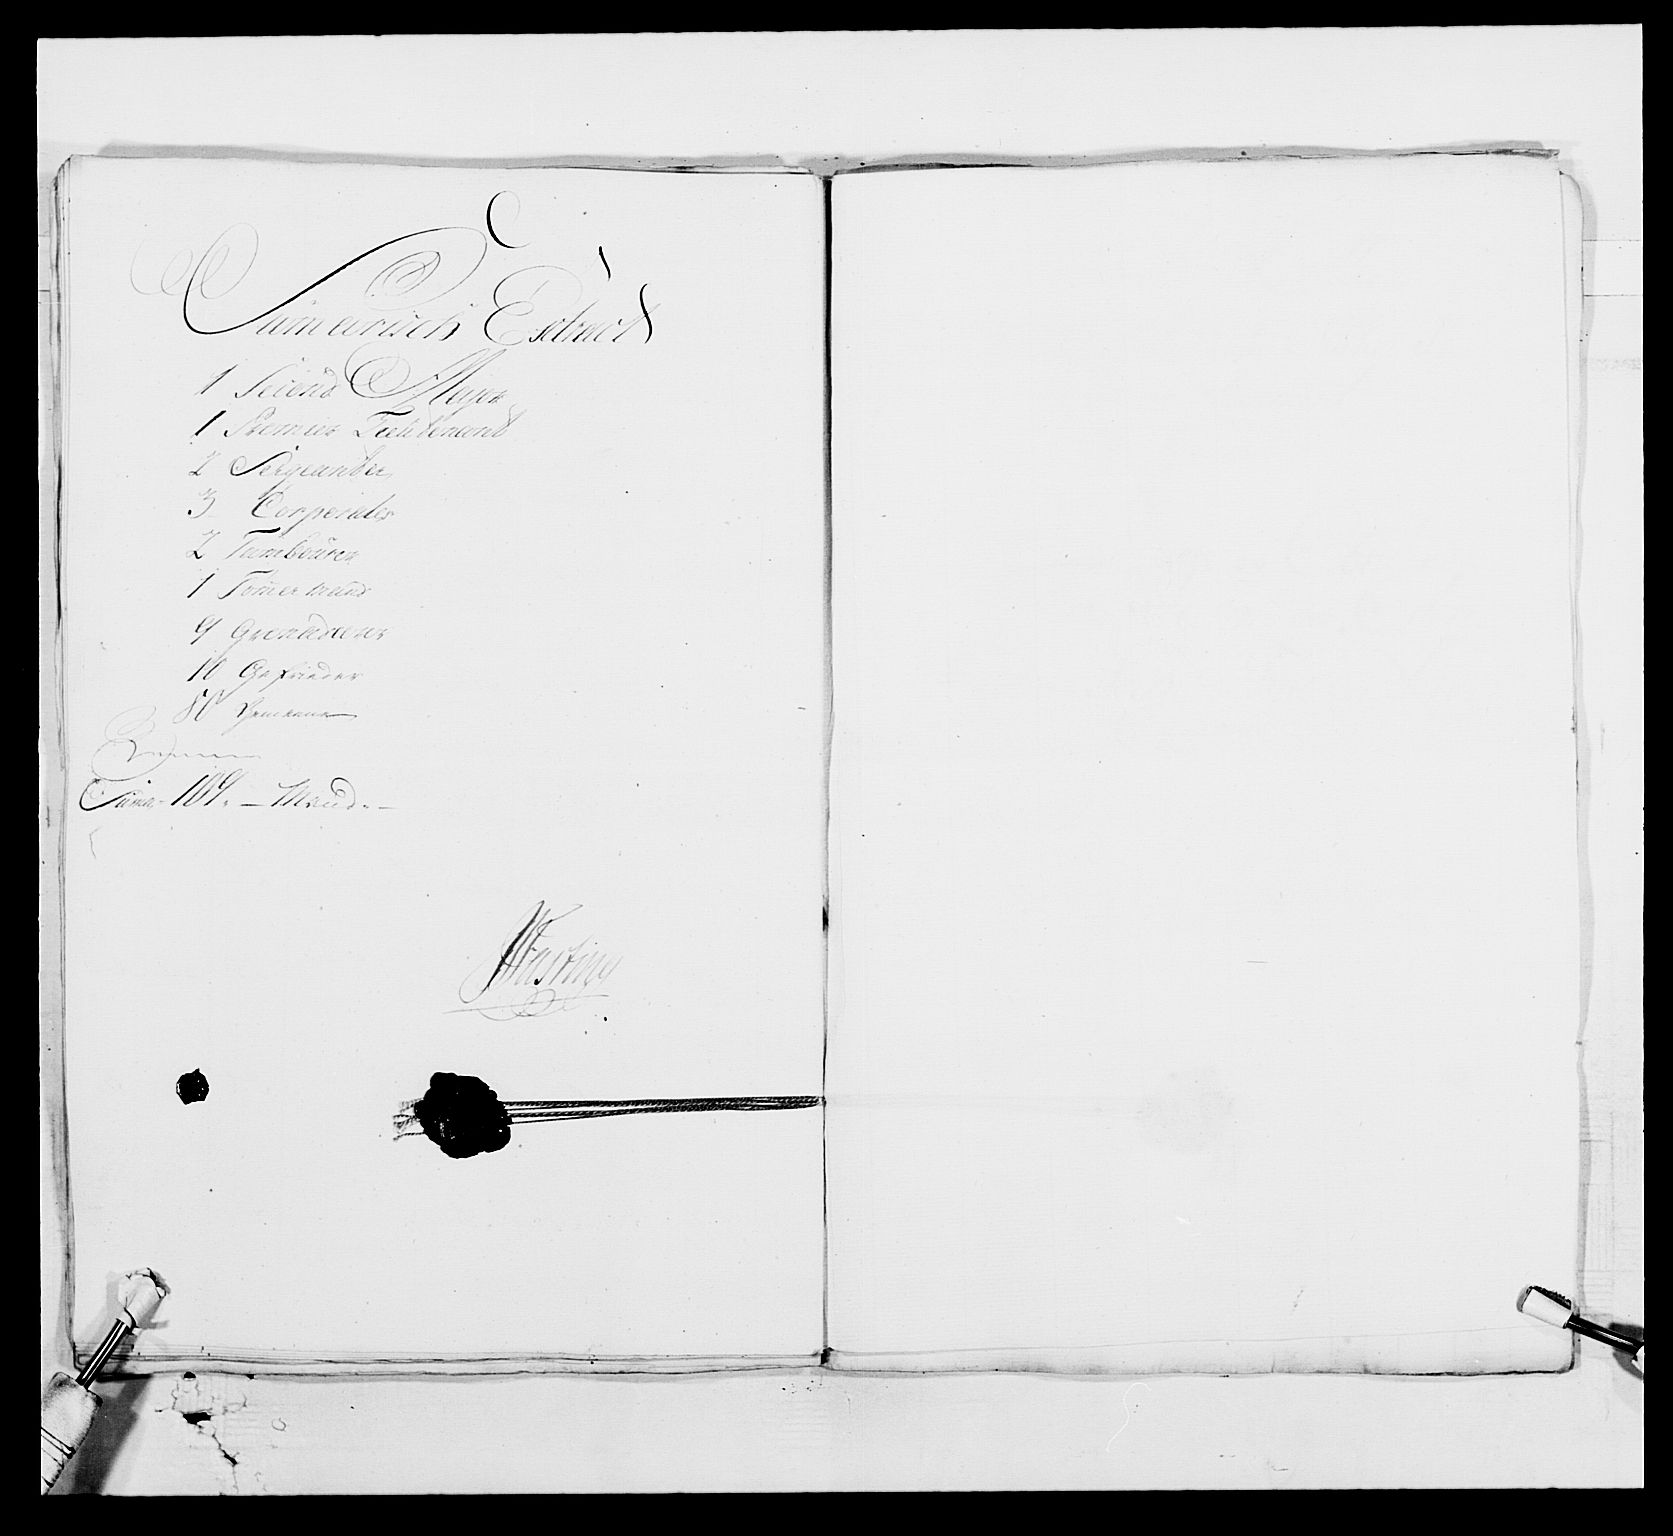 Sumarisch Extract
1 Second Major
1 Premier Lieutenant
2 Sergeanter
3 Corporaler
2 Tambourer
1 Tømermand
9 Grenaderer
10 Gefrieder
80 Gemeene
Suma 109. — Mand. —